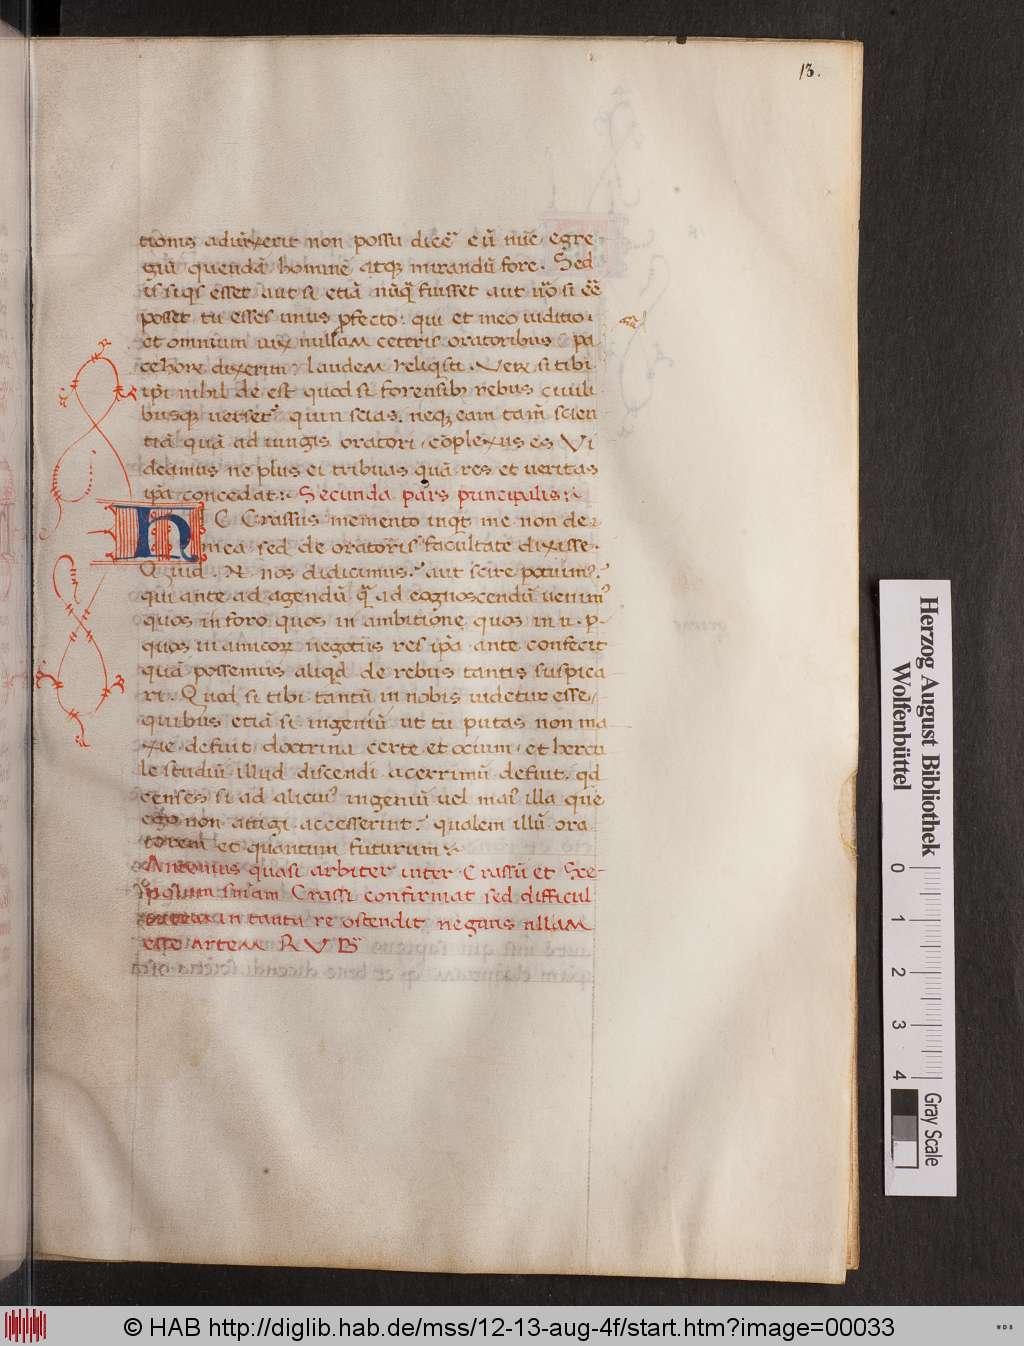 13.
tionis adiũxerit non possũ dicẽ eũ nũc egre
giũ quendã hominẽ atq; mirandũ fore. Sed
is siqs esset aut si etiã nũq̃ fuisset aut ũo si eẽ
posset tu esses unus p̱fecto. qui et meo iuditio.
et omnium uix nullam ceteris oratoribus pa
ce horẽ dixerim laudem reliqsti. Verẽ si tibi
ip̃i nihil de est quod si forensib; rebus ciuili
busq; uersetᷣ quin scias. neq; eam tam̃ scien
tiã quã ad iungis oratori cõplexus es Vi
deamus ne plus ei tribuas quã res et ueritas
ip̃a concedat: Secunda pars principalis:
h I C Crassus memento inqt me non de
mea sed de oratoris facultate dixisse.
Quid .N. nos didicimus. aut scire potuim᷒.
qui ante ad agendũ q̃ ad cognoscendũ uenim᷒
quos in foro quos in ambitione quos in .r. p̱.
quos in amicoꝝ negotiis res ip̃a ante confecit
quã possemus aliqd de rebus tantis suspica
ri. Quod si tibi tantũ in nobis uidetur esse
quibus etiã si ingeniũ ut tu putas non ma
xie defuit doctrina certe et ocium et hercu
le studiũ illud discendi acerrimũ defuit. qd
censes si ad alicui᷒ ingeniũ uel mai᷒ illa que
ego non attigi accesserint. qualem illũ ora
torem et quantum futurum
Antonius quasi arbiter inter Crassũ et Sce
uolam sm̃am Crassi confirmat sed difficul
tatem in tanta re ostendit negans ullam
esse artem RVB
Herzog August Bibliothek
Wolfenbüttel
0 1 2 3 4 Gray Scale
© HAB http://diglib.hab.de/mss/12-13-aug-4f/start.htm?image=00033